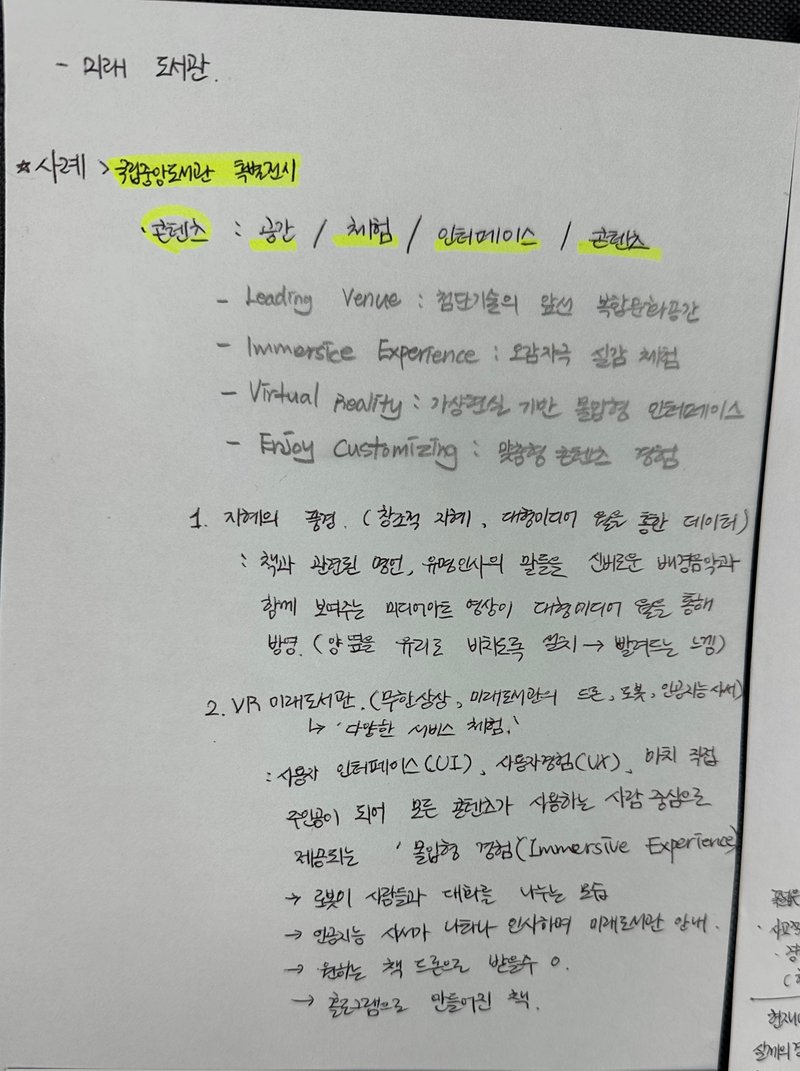 - 미래 도서관.
☆사례 > 국립중앙도서관 특별전시
· 콘텐츠 : 공간 / 체험 / 인터페이스 / 콘텐츠
- Leading Venue : 첨단기술의 앞선 복합문화공간
- Immersice Experience : 오감자극 실감 체험
- Virtual Reality : 가상현실 기반 몰입형 인터페이스
- Enjoy Customizing : 맞춤형 콘텐츠 경험
1. 지혜의 풍경. (창조적 지혜, 대형미디어 월을 통한 데이터)
: 책과 관련된 명언, 유명인사의 말들을 신비로운 배경음악과
함께 보여주는 미디어아트 영상이 대형미디어 월을 통해
방영. (양 옆을 유리로 비치도록 설치 → 빨려드는 느낌)
2. VR 미래도서관. (무한상상, 미래도서관의 드론, 로봇, 인공지능 사서)
↳ '다양한 서비스 체험.'
: 사용자 인터페이스(UI), 사용자경험(UX), 마치 직접
주인공이 되어 모든 콘텐츠가 사용하는 사람 중심으로
제공되는 '몰입형 경험(Immersive Experience)
→ 로봇이 사람들과 대화를 나누는 모습
→ 인공지능 사서가 나타나 인사하며 미래도서관 안내.
→ 원하는 책 드론으로 받을수 O.
→ 홀로그램으로 만들어진 책.
현재
실제의